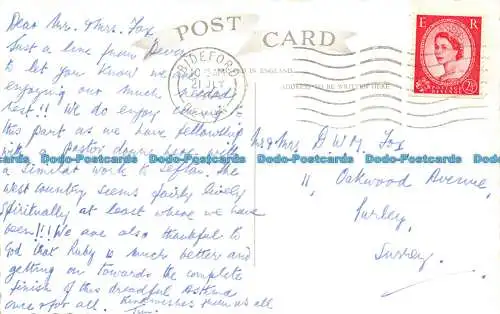 POST CARD
E R
BIDEFORD
21 JLY
IN ENGLAND
ADDRESS TO BE WRITTEN HERE
POSTAGE REVENUE
2½D
Dear Mr. & Mrs. Fox
Just a line from Devon
to let you know we are
enjoying our much needed
rest!! We do enjoy coming to
this part as we have fellowship
with a pastor down here with
a similar work to Sefton. The
West Country seems fairly lively
Spiritually at least where we have
been!!! We are also thankful to
God that Ruby is much better and
getting on towards the complete
finish of this dreadful Asthma
once & for all. Kind wishes from us all
Mr & Mrs D W M Fox
11, Oakwood Avenue,
Purley,
Surrey.
Dodo-Postcards Dodo-Postcards Dodo-Postcards
Dodo-Postcards Dodo-Postcards Dodo-Postcards